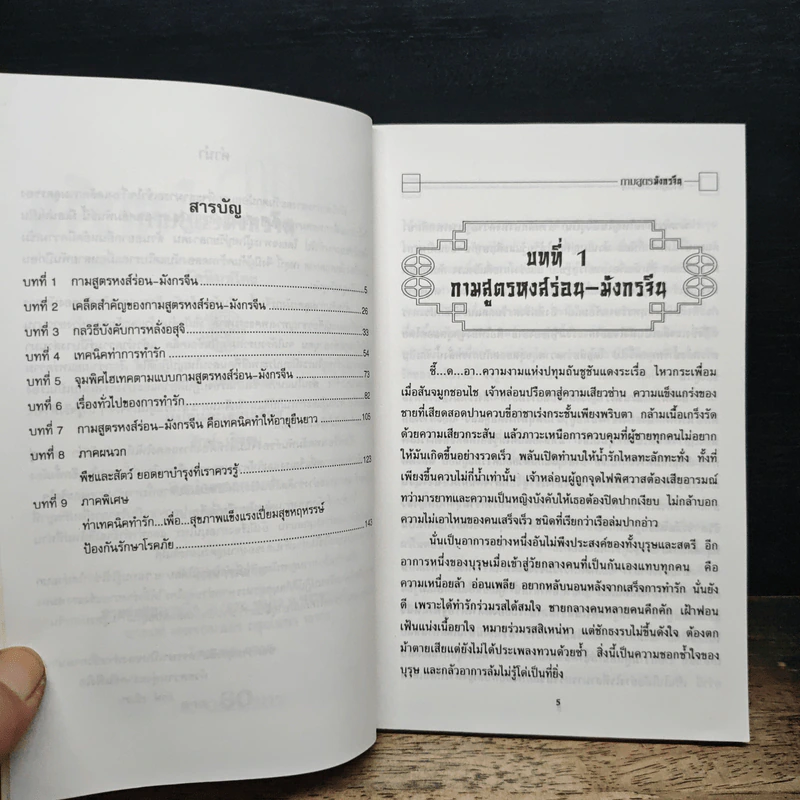 สารบัญ
บทที่ 1 กามสูตรหงส์ร่อน-มังกรจีน 5
บทที่ 2 เคล็ดสำคัญของกามสูตรหงส์ร่อน-มังกรจีน 26
บทที่ 3 กลวิธีบังคับการหลั่งอสุจิ 33
บทที่ 4 เทคนิคท่าการทำรัก 54
บทที่ 5 จุมพิศไฮเทคตามแบบกามสูตรหงส์ร่อน-มังกรจีน 73
บทที่ 6 เรื่องทั่วไปของการทำรัก 82
บทที่ 7 กามสูตรหงส์ร่อน-มังกรจีน คือเทคนิคทำให้อายุยืนยาว 105
บทที่ 8 ภาคผนวก
พืชและสัตว์ ยอดยาบำรุงที่เราควรรู้ 123
บทที่ 9 ภาคพิเศษ
ท่าเทคนิคทำรัก...เพื่อ...สุขภาพแข็งแรงเปี่ยมสุขหฤหรรษ์ 143
ป้องกันรักษาโรคภัย
กามสูตรมังกรจีน
บทที่ 1
กามสูตรหงส์ร่อน-มังกรจีน
ซี้...ด...อา..ความงามแห่งปทุมถันชูชันแดงระเรื่อ ไหวกระเพื่อม
เมื่อสันจมูกชอนไช เจ้าหล่อนปรือตาสู่ความเสียวซ่าน ความแข็งแกร่งของ
ชายที่เสียดสอดปานควบขี่อาชาเร่งกระชั้นเพียงพริบตา กล้ามเนื้อเกร็งรัด
ด้วยความเสียวกระสัน แล้วภาวะเหนือการควบคุมที่ผู้ชายทุกคนไม่อยาก
ให้มันเกิดขึ้นอย่างรวดเร็ว พลันเปิดทำนบให้น้ำรักไหลทะลักทะทั่ง ทั้งที่
เพียงขึ้นควบไม่กี่น้ำเท่านั้น เจ้าหล่อนผู้ถูกจุดไฟพิศวาสต้องเสียอารมณ์
ทว่ามารยาทและความเป็นหญิงบังคับให้เธอต้องปิดปากเงียบ ไม่กล้าบอก
ความไม่เอาไหนของคนเสร็จเร็ว ชนิดที่เรียกว่าเรือล่มปากอ่าว
นั่นเป็นอาการอย่างหนึ่งอันไม่พึงประสงค์ของทั้งบุรุษและสตรี อีก
อาการหนึ่งของบุรุษเมื่อเข้าสู่วัยกลางคนที่เป็นกันเองแทบทุกคน คือ
ความเหนื่อยล้า อ่อนเพลีย อยากหลับนอนหลังจากเสร็จการทำรัก นั่นยัง
ดี เพราะได้ทำรักร่วมรสได้สมใจ ชายกลางคนหลายคนคึกคัก เฝ้าฟอน
เฟ้นแน่งเนื้อยาใจ หมายร่วมรสสิเหน่หา แต่ชักธงรบไม่ขึ้นดังใจ ต้องตก
ม้าตายเสียแต่ยังไม่ได้ประเพลงทวนด้วยซ้ำ สิ่งนี้เป็นความชอกช้ำใจของ
บุรุษ และกลัวอาการล้มไม่รู้โด่เป็นที่ยิ่ง
5